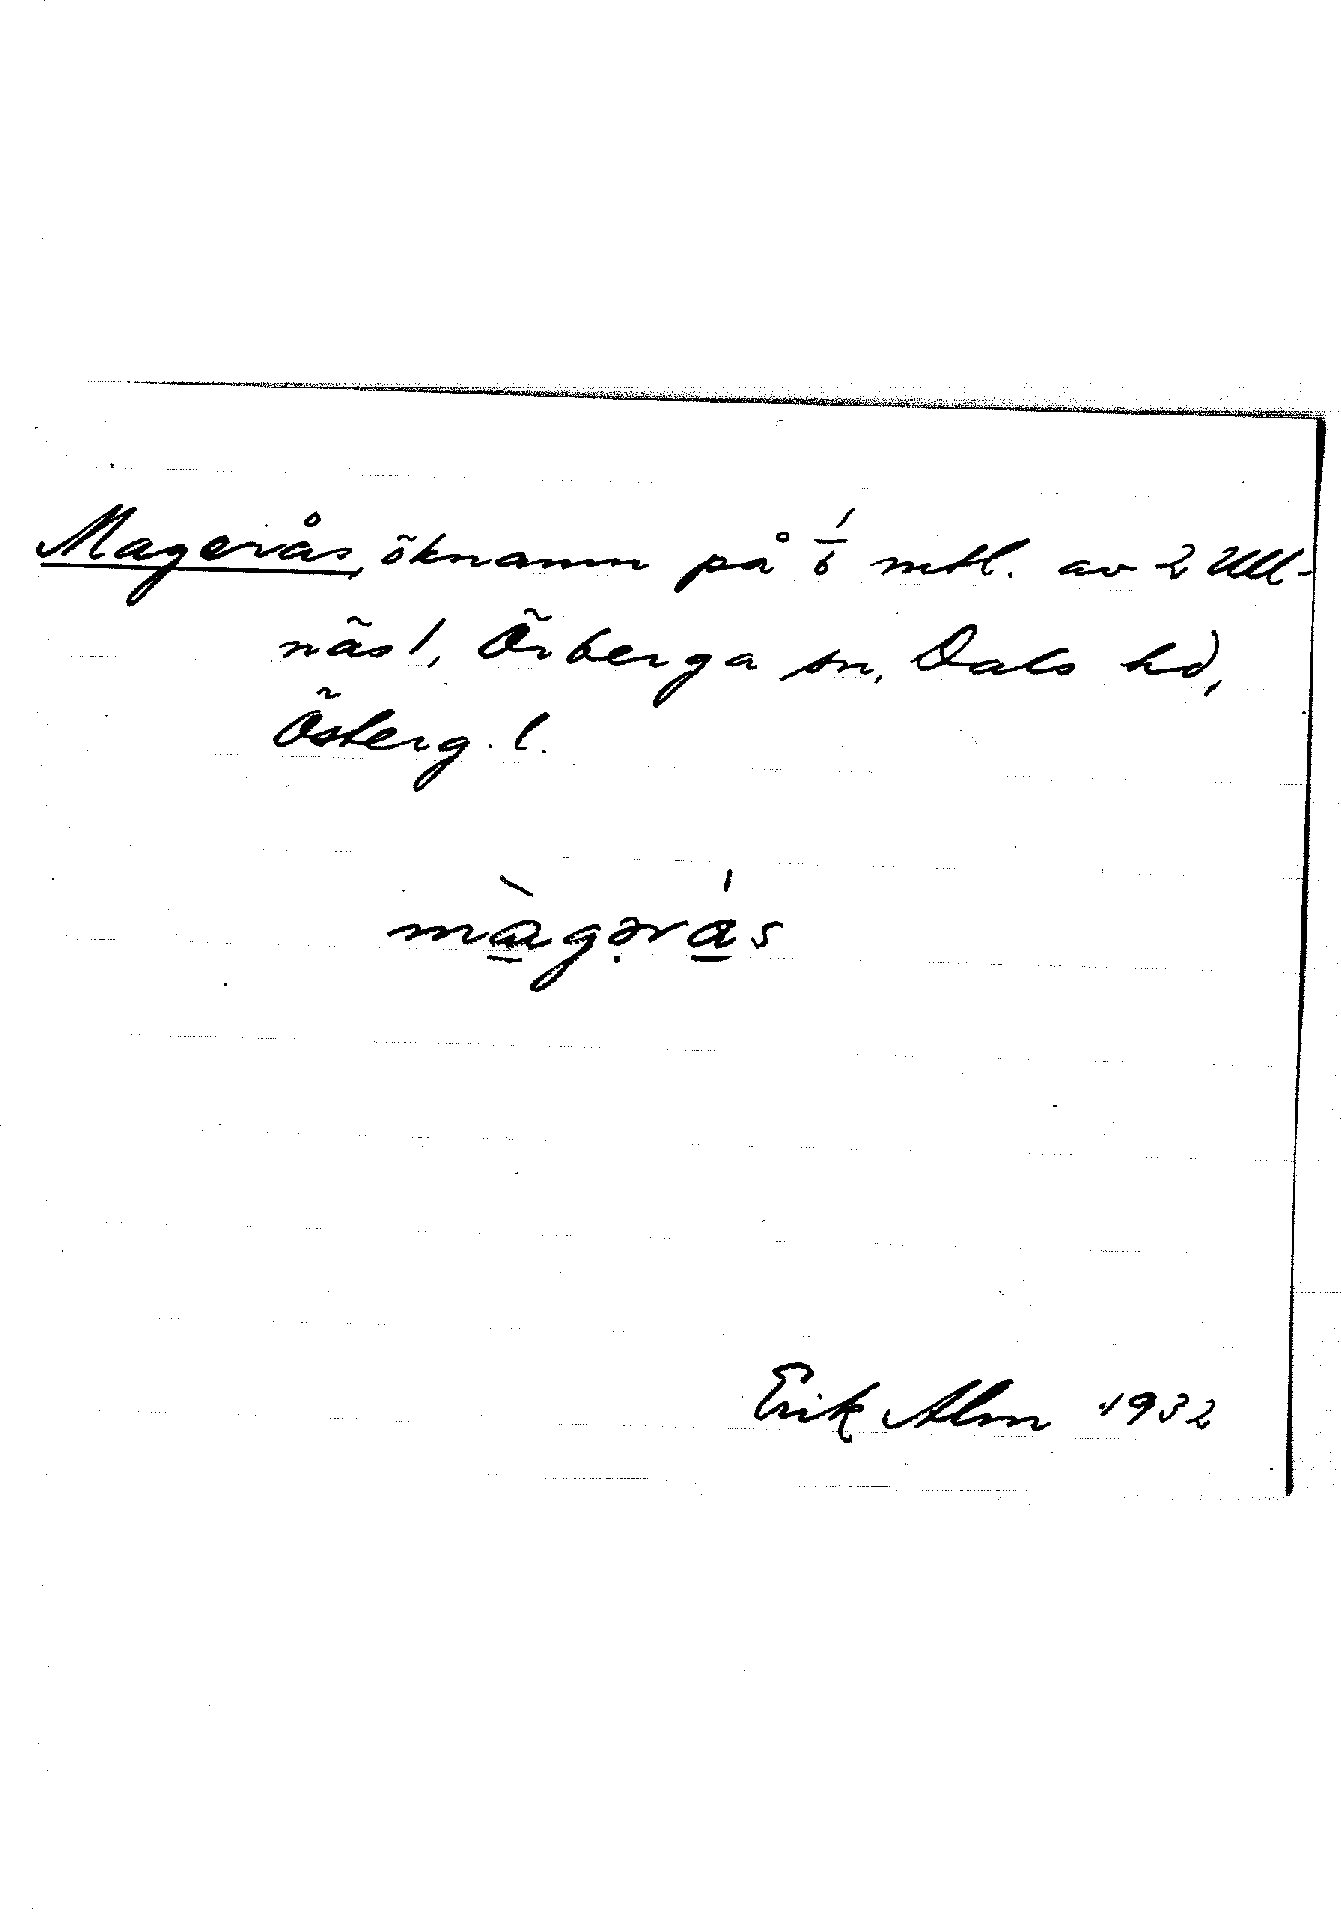 Magerås, öknamn på 1/6 mtl. av 2 Ull-
näs 1, Örberga sn, Dals hd,
Österg. l.
màgərás
Erik Alm 1932